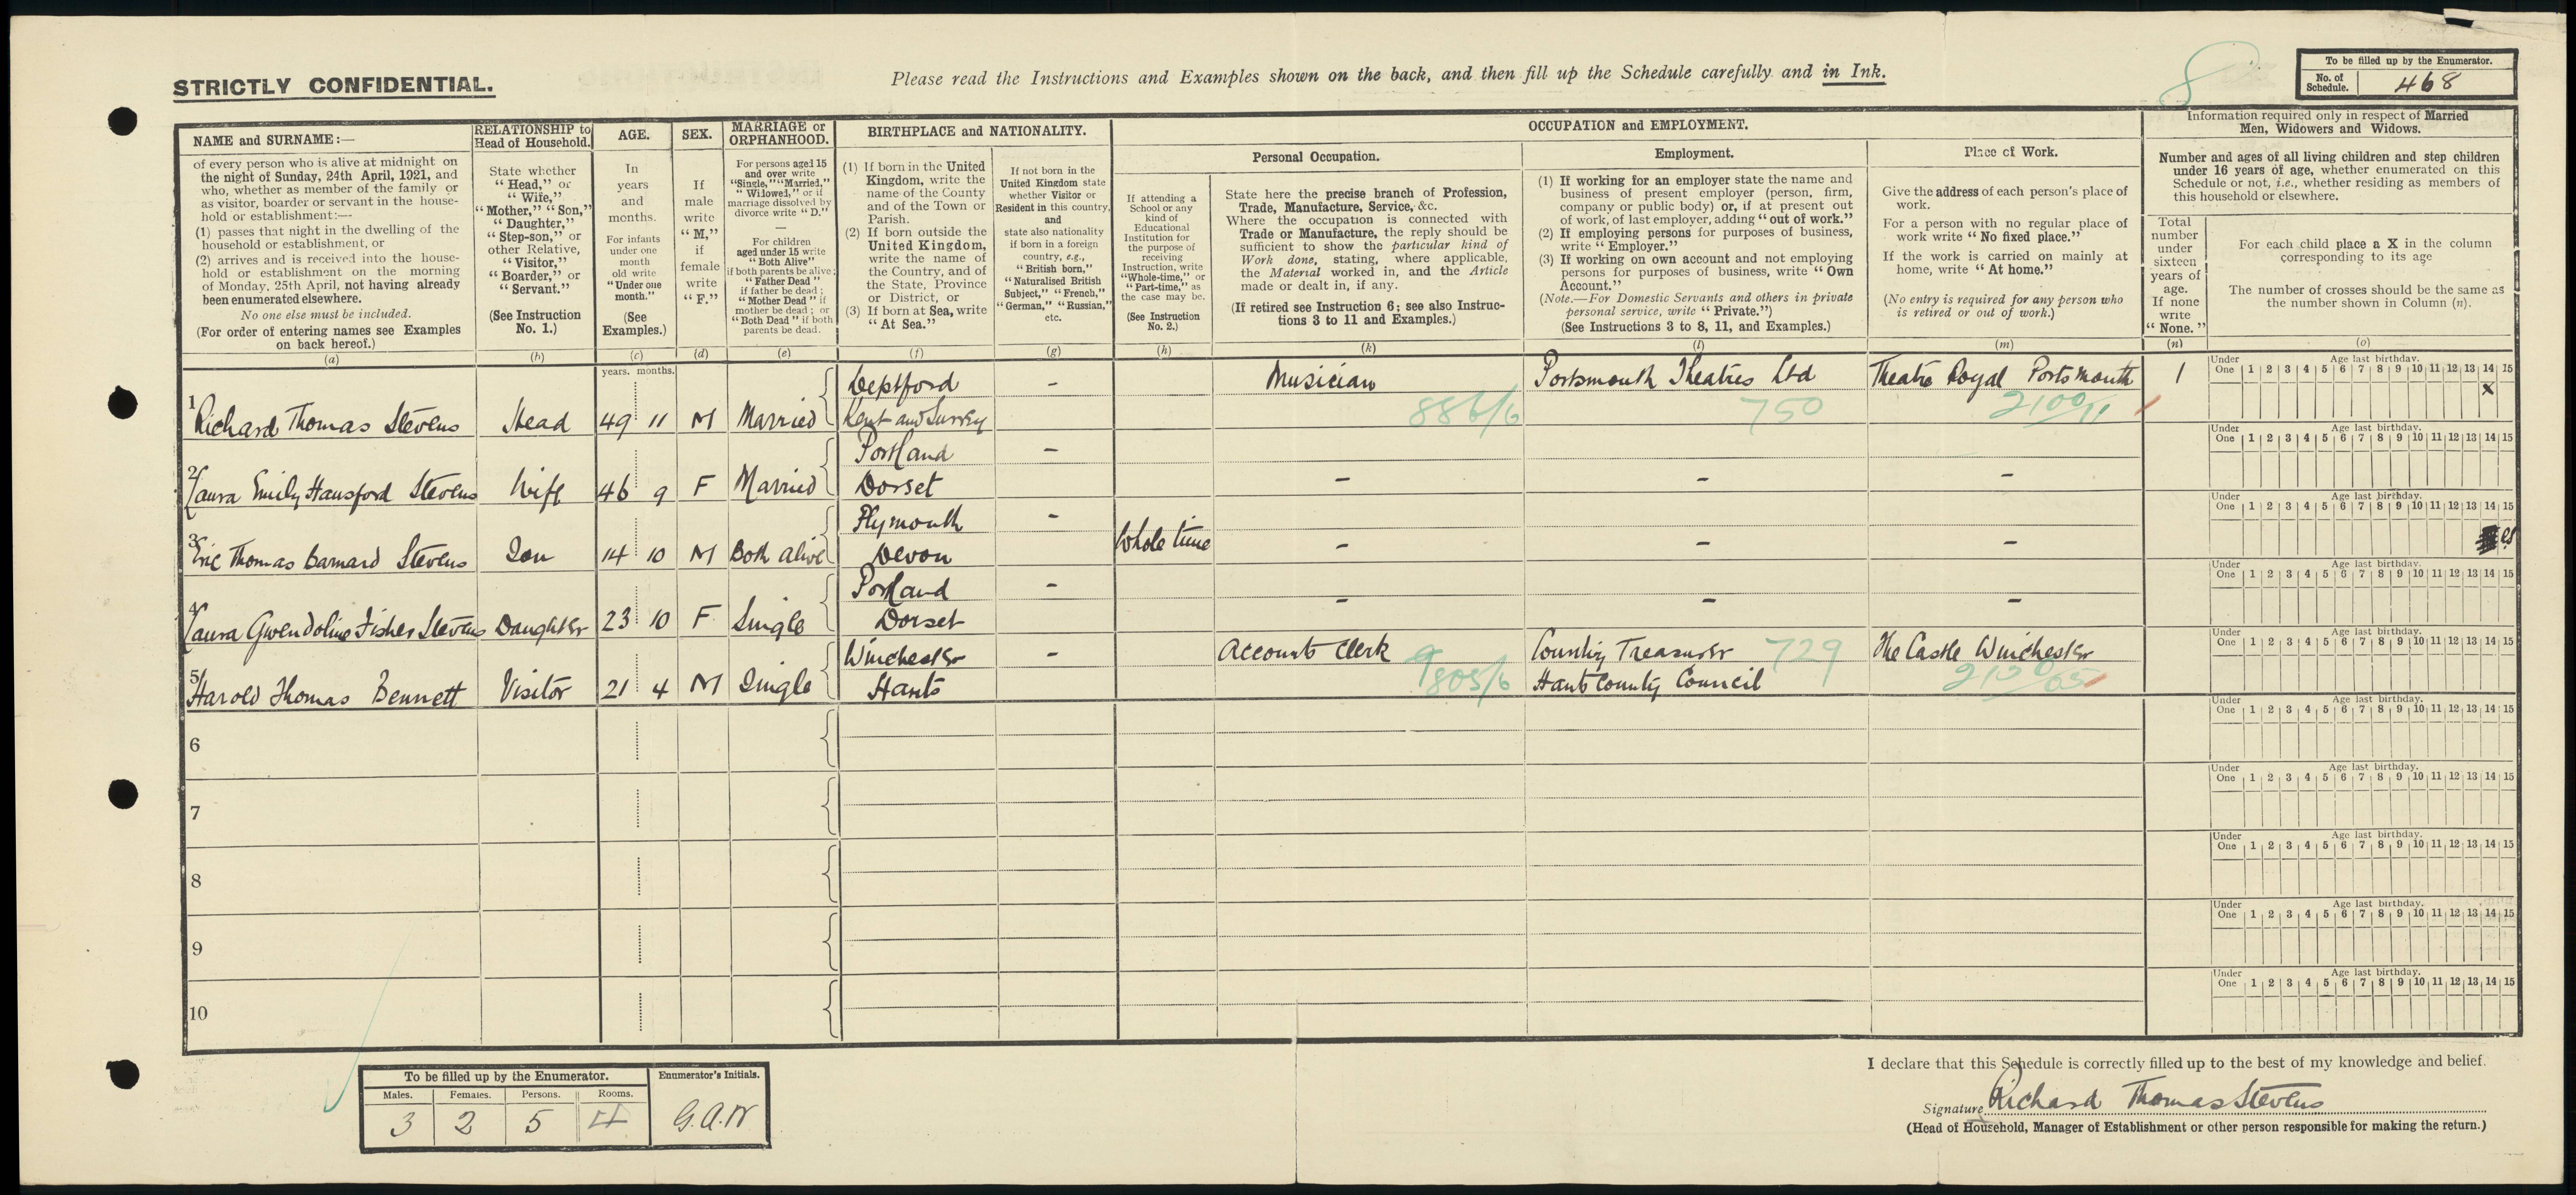 STRICTLY CONFIDENTIAL.
Please read the Instructions and Examples shown on the back, and then fill up the Schedule carefully and in Ink.
8
To be filled up by the Enumerator.
No. of Schedule. 468
NAME and SURNAME:—
of every person who is alive at midnight on
the night of Sunday, 24th April, 1921, and
who, whether as member of the family or
as visitor, boarder or servant in the house-
hold or establishment:—
(1) passes that night in the dwelling of the
household or establishment, or
(2) arrives and is received into the house-
hold or establishment on the morning
of Monday, 25th April, not having already
been enumerated elsewhere.
No one else must be included.
(For order of entering names see Examples
on back hereof.)
(a)
RELATIONSHIP to
Head of Household.
State whether
"Head," or
"Wife,"
"Mother," "Son,"
"Daughter,"
"Step-son," or
other Relative,
"Visitor,"
"Boarder," or
"Servant."
(See Instruction
No. 1.)
(b)
AGE.
In
years
and
months.
For infants
under one
month
old write
"Under one
month."
(See
Examples.)
(c)
SEX.
If
male
write
"M,"
if
female
write
"F."
(d)
MARRIAGE or
ORPHANHOOD.
For persons aged 15
and over write
"Single," "Married,"
"Widowed," or if
marriage dissolved by
divorce write "D."
—
For children
aged under 15 write
"Both Alive"
if both parents be alive;
"Father Dead"
if father be dead;
"Mother Dead" if
mother be dead; or
"Both Dead" if both
parents be dead.
(e)
BIRTHPLACE and NATIONALITY.
(1) If born in the United
Kingdom, write the
name of the County
and of the Town or
Parish.
(2) If born outside the
United Kingdom,
write the name of
the Country, and of
the State, Province
or District, or
(3) If born at Sea, write
"At Sea."
(f)
If not born in the
United Kingdom state
whether Visitor or
Resident in this country,
and
state also nationality
if born in a foreign
country, e.g.,
"British born,"
"Naturalised British
Subject," "French,"
"German," "Russian,"
etc.
(g)
OCCUPATION and EMPLOYMENT.
Personal Occupation.
If attending a
School or any
kind of
Educational
Institution for
the purpose of
receiving
Instruction, write
"Whole-time," or
"Part-time," as
the case may be.
(See Instruction
No. 2.)
(h)
State here the precise branch of Profession,
Trade, Manufacture, Service, &c.
Where the occupation is connected with
Trade or Manufacture, the reply should be
sufficient to show the particular kind of
Work done, stating, where applicable,
the Material worked in, and the Article
made or dealt in, if any.
(If retired see Instruction 6; see also Instruc-
tions 3 to 11 and Examples.)
(k)
Employment.
(1) If working for an employer state the name and
business of present employer (person, firm,
company or public body) or, if at present out
of work, of last employer, adding "out of work."
(2) If employing persons for purposes of business,
write "Employer."
(3) If working on own account and not employing
persons for purposes of business, write "Own
Account."
(Note.—For Domestic Servants and others in private
personal service, write "Private.")
(See Instructions 3 to 8, 11, and Examples.)
(l)
Place of Work.
Give the address of each person's place of
work.
For a person with no regular place of
work write "No fixed place."
If the work is carried on mainly at
home, write "At home."
(No entry is required for any person who
is retired or out of work.)
(m)
Information required only in respect of Married
Men, Widowers and Widows.
Number and ages of all living children and step children
under 16 years of age, whether enumerated on this
Schedule or not, i.e., whether residing as members of
this household or elsewhere.
Total
number
under
sixteen
years of
age.
If none
write
"None."
(n)
For each child place a X in the column
corresponding to its age
The number of crosses should be the same as
the number shown in Column (n).
(o)
years. months.
Under One 1 2 3 4 5 6 7 8 9 10 11 12 13 14 15
Age last birthday.
1 Richard Thomas Stevens Head 49 11 M Married Deptford Kent and Surrey - Musician 886/6 Portsmouth Theatres Ltd 750 Theatre Royal Portsmouth 1 x
Under One 1 2 3 4 5 6 7 8 9 10 11 12 13 14 15
Age last birthday.
2 Laura Emily Hansford Stevens Wife 46 9 F Married Portland Dorset - - - -
Under One 1 2 3 4 5 6 7 8 9 10 11 12 13 14 15
Age last birthday.
3 Eric Thomas Barnard Stevens Son 14 10 M Both alive Plymouth Devon - Whole time - - -
Under One 1 2 3 4 5 6 7 8 9 10 11 12 13 14 15
Age last birthday.
4 Laura Gwendoline Fisher Stevens Daughter 23 10 F Single Portland Dorset - - - -
Under One 1 2 3 4 5 6 7 8 9 10 11 12 13 14 15
Age last birthday.
5 Harold Thomas Bennett Visitor 21 4 M Single Winchester Hants - Accounts Clerk 805/6 County Treasurer Hants County Council 729 The Castle Winchester
Under One 1 2 3 4 5 6 7 8 9 10 11 12 13 14 15
Age last birthday.
6
Under One 1 2 3 4 5 6 7 8 9 10 11 12 13 14 15
Age last birthday.
7
Under One 1 2 3 4 5 6 7 8 9 10 11 12 13 14 15
Age last birthday.
8
Under One 1 2 3 4 5 6 7 8 9 10 11 12 13 14 15
Age last birthday.
9
Under One 1 2 3 4 5 6 7 8 9 10 11 12 13 14 15
Age last birthday.
10
To be filled up by the Enumerator.
Males. Females. Persons. Rooms.
3 2 5 4
Enumerator's Initials.
G.A.W
I declare that this Schedule is correctly filled up to the best of my knowledge and belief.
Signature Richard Thomas Stevens
(Head of Household, Manager of Establishment or other person responsible for making the return.)